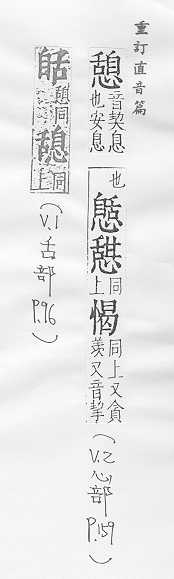 重訂直音篇
憩音契息也安息也
同上愒同上又貪羨又音挈(V.2心部P.159)
憩同憩同上(V.1舌部P.96)